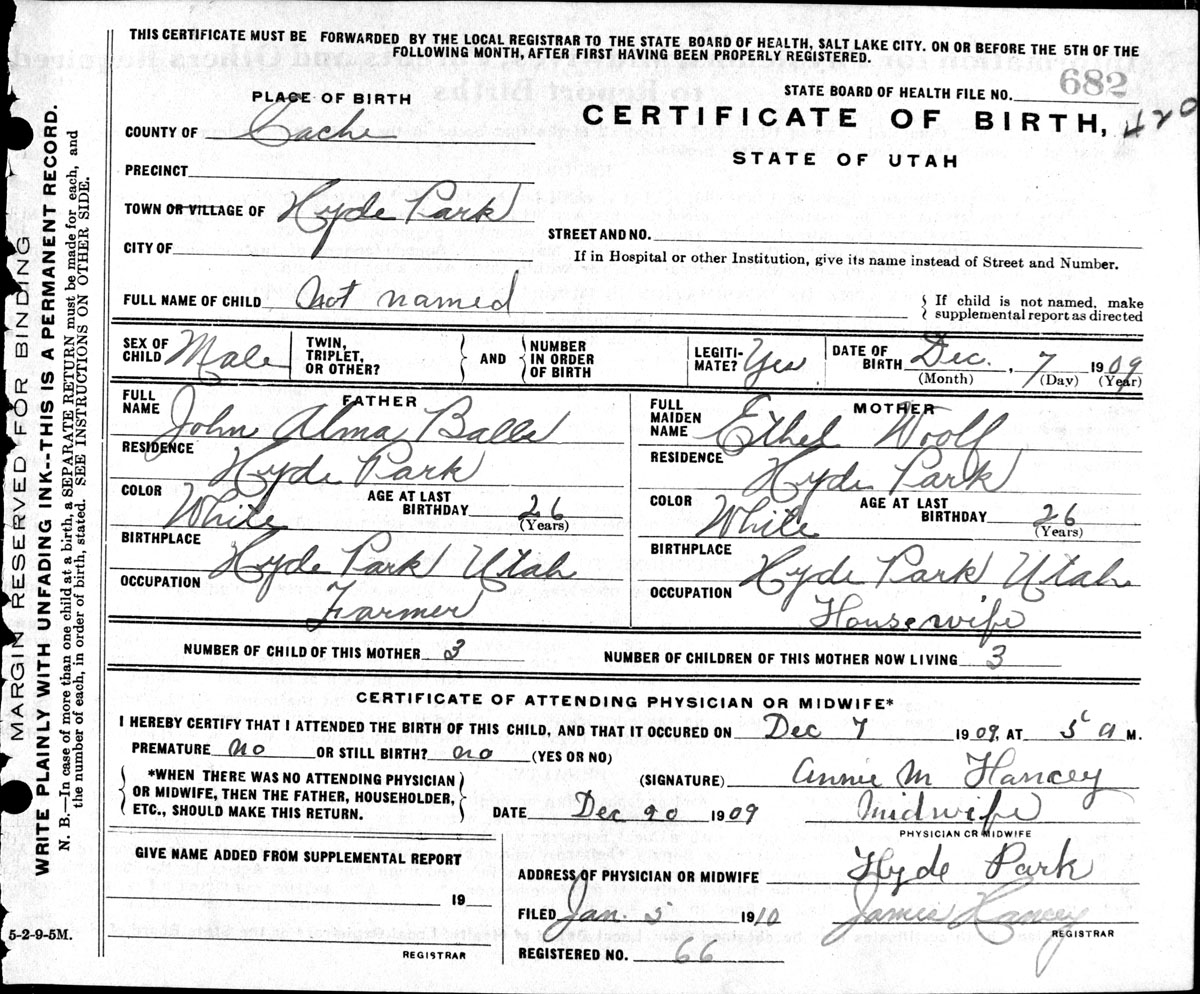 THIS CERTIFICATE MUST BE FORWARDED BY THE LOCAL REGISTRAR TO THE STATE BOARD OF HEALTH, SALT LAKE CITY. ON OR BEFORE THE 5TH OF THE
FOLLOWING MONTH, AFTER FIRST HAVING BEEN PROPERLY REGISTERED.
STATE BOARD OF HEALTH FILE NO. 682
PLACE OF BIRTH
CERTIFICATE OF BIRTH, 420
COUNTY OF Cache
STATE OF UTAH
PRECINCT
TOWN OR VILLAGE OF Hyde Park
STREET AND NO.
CITY OF
If in Hospital or other Institution, give its name instead of Street and Number.
FULL NAME OF CHILD not named
{ If child is not named, make
{ supplemental report as directed
SEX OF CHILD Male
TWIN, TRIPLET, OR OTHER? } AND { NUMBER IN ORDER OF BIRTH
LEGITI- MATE? Yes
DATE OF BIRTH Dec. , 7 1909
(Month) (Day) (Year)
FATHER
FULL NAME John Alma Balls
RESIDENCE Hyde Park
COLOR White AGE AT LAST BIRTHDAY 26
(Years)
BIRTHPLACE Hyde Park Utah
OCCUPATION Farmer
MOTHER
FULL MAIDEN NAME Ethel Woolf
RESIDENCE Hyde Park
COLOR White AGE AT LAST BIRTHDAY 26
(Years)
BIRTHPLACE Hyde Park Utah
OCCUPATION Housewife
NUMBER OF CHILD OF THIS MOTHER 3 NUMBER OF CHILDREN OF THIS MOTHER NOW LIVING 3
CERTIFICATE OF ATTENDING PHYSICIAN OR MIDWIFE*
I HEREBY CERTIFY THAT I ATTENDED THE BIRTH OF THIS CHILD, AND THAT IT OCCURED ON Dec 7 1909, AT 5 a M.
PREMATURE no OR STILL BIRTH? no (YES OR NO)
{ *WHEN THERE WAS NO ATTENDING PHYSICIAN }
OR MIDWIFE, THEN THE FATHER, HOUSEHOLDER,
ETC., SHOULD MAKE THIS RETURN.
(SIGNATURE) Annie M Hancey
DATE Dec 20 1909 Midwife
PHYSICIAN OR MIDWIFE
GIVE NAME ADDED FROM SUPPLEMENTAL REPORT
19
REGISTRAR
ADDRESS OF PHYSICIAN OR MIDWIFE Hyde Park
FILED Jan. 5 1910 James Hancey
REGISTRAR
REGISTERED NO. 66
MARGIN RESERVED FOR BINDING
WRITE PLAINLY WITH UNFADING INK--THIS IS A PERMANENT RECORD.
N. B.—In case of more than one child at a birth, a SEPARATE RETURN must be made for each, and
the number of each, in order of birth, stated. SEE INSTRUCTIONS ON OTHER SIDE.
5-2-9-5M.